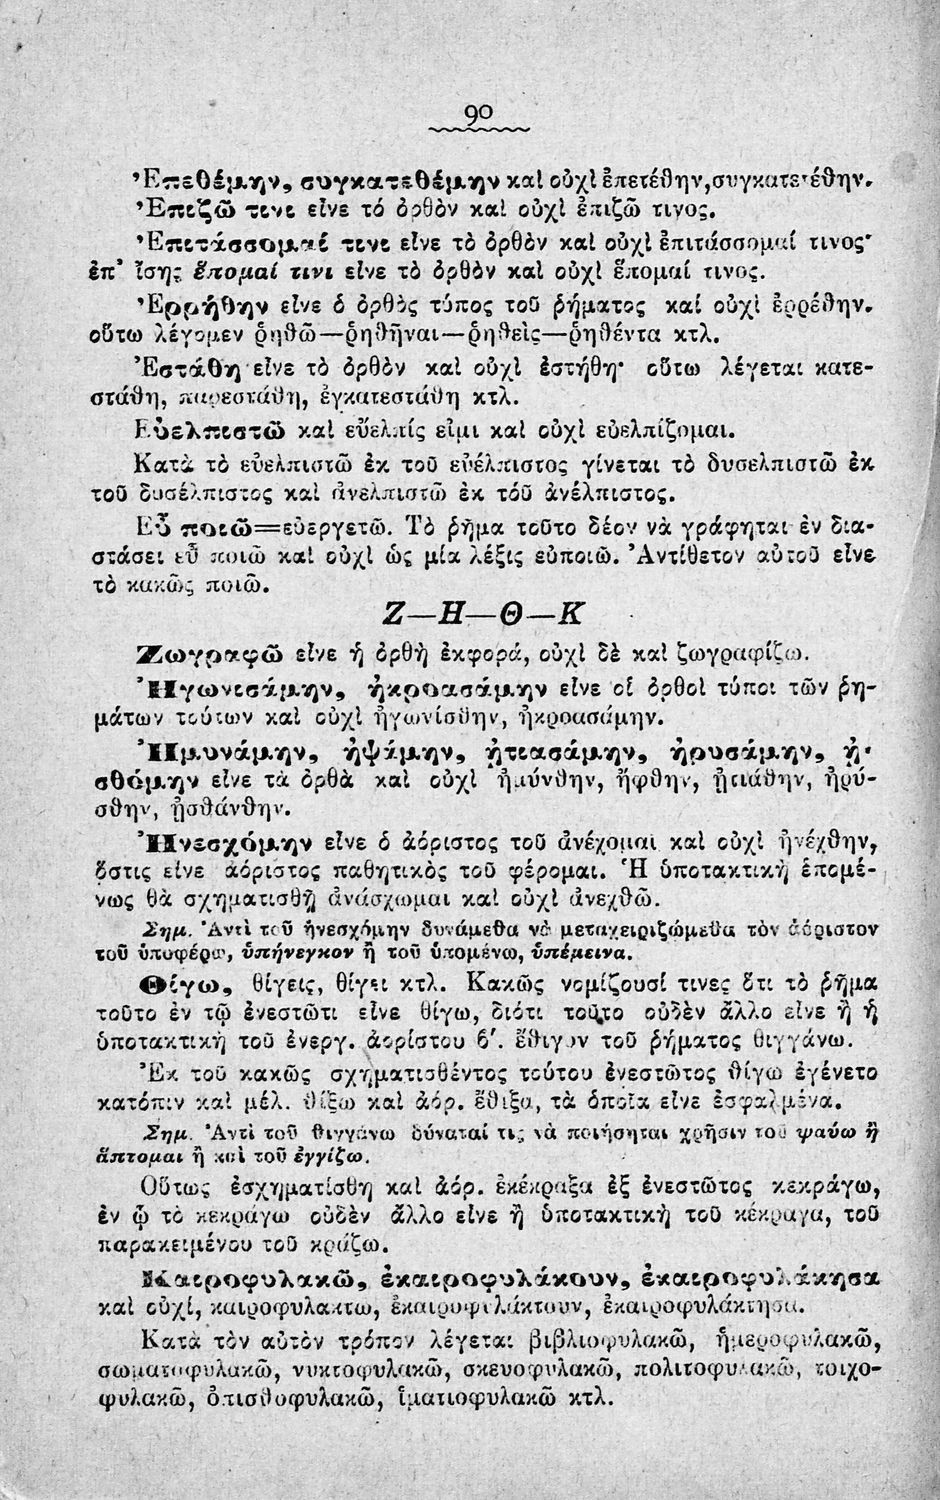 90
Ἐπεθέμην, συγκατεθέμην καὶ οὐχὶ ἐπετέθην, συγκατετέθην.
Ἐπιζῶ τινι εἶνε τό ὀρθὸν καὶ οὐχὶ ἐπιζῶ τινος.
Ἐπιτάσσομαί τινι εἶνε τὸ ὀρθὸν καὶ οὐχὶ ἐπιτάσσομαί τινος·
ἐπ’ ἴσης ἕπομαί τινι εἶνε τὸ ὀρθὸν καὶ οὐχὶ ἕπομαί τινος.
Ἐρρήθην εἶνε ὁ ὀρθὸς τύπος τοῦ ῥήματος καί οὐχὶ ἐρρέθην.
οὕτω λέγομεν ῥηθῶ—ῥηθῆναι—ῥηθεὶς—ῥηθέντα κτλ.
Ἐστάθη εἶνε τὸ ὀρθὸν καὶ οὐχὶ ἐστήθη· οὕτω λέγεται κατε-
στάθη, παρεστάθη, ἐγκατεστάθη κτλ.
Εὐελπιστῶ καὶ εὔελπίς εἰμι καὶ οὐχὶ εὐελπίζομαι.
Κατὰ τὸ εὐελπιστῶ ἐκ τοῦ εὐέλπιστος γίνεται τὸ δυσελπιστῶ ἐκ
τοῦ δυσέλπιστος καὶ ἀνελπιστῶ ἐκ τόῦ ἀνέλπιστος.
Εὖ ποιῶ=εὐεργετῶ. Τὸ ῥῆμα τοῦτο δέον νὰ γράφηται ἐν δια-
στάσει εὖ ποιῶ καὶ οὐχὶ ὡς μία λέξις εὐποιῶ. Ἀντίθετον αὐτοῦ εἶνε
τὸ κακῶς ποιῶ.
Ζ—Η—Θ—Κ
Ζωγραφῶ εἶνε ἡ ὀρθὴ ἐκφορά, οὐχὶ δὲ καὶ ζωγραφίζω.
Ἠγωνισάμην, ἠκροασάμην εἶνε οἱ ὀρθοὶ τύποι τῶν ῥη-
μάτων τούτων καὶ οὐχὶ ἠγωνίσθην, ἠκροασάμην.
Ἠμυνάμην, ἡψάμην, ᾐτιασάμην, ἠρυσάμην, ᾐ-
σθόμην εἶνε τὰ ὀρθὰ καὶ οὐχὶ ἠμύνθην, ἥφθην, ᾐτιάθην, ἠρύ-
σθην, ᾐσθάνθην.
Ἠνεσχόμην εἶνε ὁ ἀόριστος τοῦ ἀνέχομαι καὶ οὐχὶ ἠνέχθην,
ὅστις εἶνε ἀόριστος παθητικὸς τοῦ φέρομαι. Ἡ ὑποτακτικὴ ἑπομέ-
νως θὰ σχηματισθῇ ἀνάσχωμαι καὶ οὐχὶ ἀνεχθῶ.
Σημ. Ἀντὶ τοῦ ἠνεσχόμην δυνάμεθα νὰ μεταχειριζώμεθα τὸν ἀόριστον
τοῦ ὑποφέρω, ὑπήνεγκον ἢ τοῦ ὑπομένω, ὑπέμεινα.
Θίγω, θίγεις, θίγει κτλ. Κακῶς νομίζουσί τινες ὅτι τὸ ῥῆμα
τοῦτο ἐν τῷ ἐνεστῶτι εἶνε θίγω, διότι τοῦτο οὐδὲν ἄλλο εἶνε ἢ ἡ
ὑποτακτικὴ τοῦ ἐνεργ. ἀορίστου β΄. ἔθιγον τοῦ ῥήματος θιγγάνω.
Ἐκ τοῦ κακῶς σχηματισθέντος τούτου ἐνεστῶτος θίγω ἐγένετο
κατόπιν καὶ μέλ. θίξω καὶ ἀόρ. ἔθιξα, τὰ ὁποῖα εἶνε ἐσφαλμένα.
Σημ. Ἀντὶ τοῦ θιγγάνω δύναταί τις νὰ ποιήσηται χρῆσιν τοῦ ψαύω ἢ
ἅπτομαι ἢ καὶ τοῦ ἐγγίζω.
Οὕτως ἐσχηματίσθη καὶ ἀόρ. ἐκέκραξα ἐξ ἐνεστῶτος κεκράγω,
ἐν ᾧ τὸ κεκράγω οὐδὲν ἄλλο εἶνε ἢ ὑποτακτικὴ τοῦ κέκραγα, τοῦ
παρακειμένου τοῦ κράζω.
Καιροφυλακῶ, ἐκαιροφυλάκουν, ἐκαιροφυλάκησα
καὶ οὐχί, καιροφυλακτω, ἐκαιροφυλάκτουν, ἐκαιροφυλάκτησα.
Κατὰ τὸν αὐτὸν τρόπον λέγεται βιβλιοφυλακῶ, ἡμεροφυλακῶ,
σωματοφυλακῶ, νυκτοφυλακῶ, σκευοφυλακῶ, πολιτοφυλακῶ, τοιχο-
φυλακῶ, ὀπισθοφυλακῶ, ἱματιοφυλακῶ κτλ.